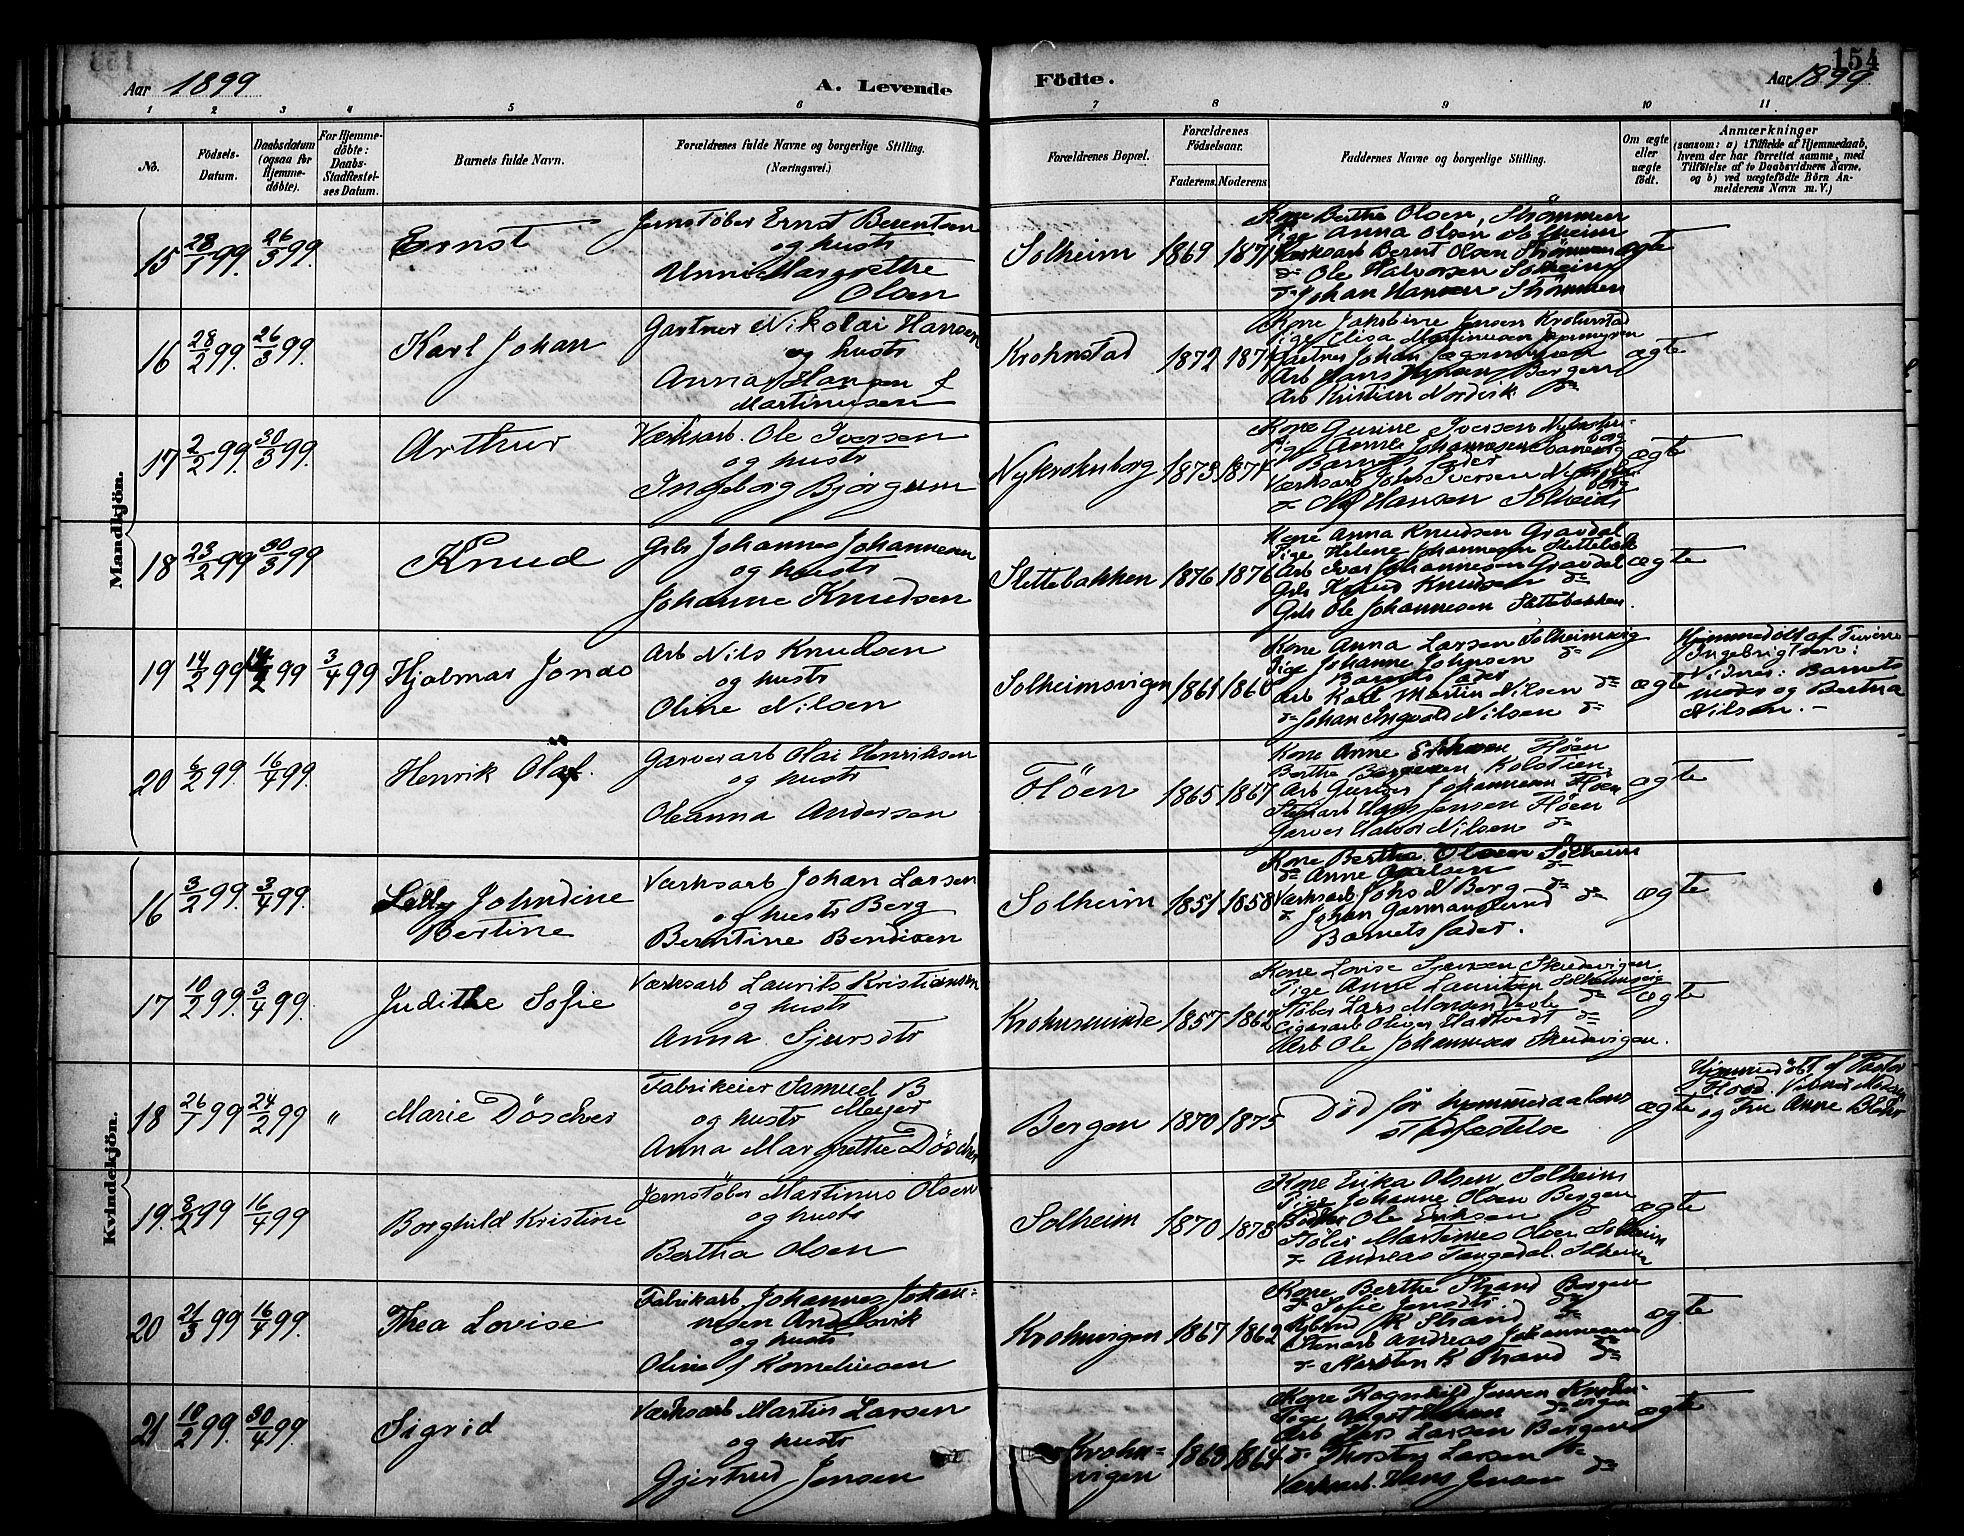 154
Aar 1899
A. Levende
Fødte.
Aar 1899
1 2 3 4 5 6 7 8 9 10 11
No.
Fødsels-Datum.
Daabsdatum (ogsaa for Hjemme-døbte).
For Hjemme-døbte: Daabs-Stadfæstel-ses Datum.
Barnets fulde Navn.
Forældrenes fulde Navne og borgerlige Stilling. (Næringsvei.)
Forældrenes Bopæl.
Forældrenes Fødselsaar.
Faderens. Moderens.
Faddernes Navne og borgerlige Stilling.
Om ægte eller uægte født.
Anmærkninger
(saasom: a) i Tilfælde af Hjemmedaab, hvem der har forrettet samme, med Tilføielse af to Daabsvidners Navne, og b) ved uægtefødte Børn An-melderens Navn m. V.)
Mandkjön.
15 26/3 99. Ernst
Jernstøber Ernst Berentsen
og hustr
Olsen
Solheim 1869 1871
Kone Berthe Olsen, Strømmen
Pige Anna Olsen Solheim
Værksarb Berent Olsen Strømmen
do Ole Halvorsen Solheim
do Johan Hansen Strømmen
ægte
16 28/2 99. 26/3 99. Karl Johan
Gartner Nikolai Hansen
og hustr
Anna Hansen f
Martinusen
Krohnstad 1872
Kone Jakobine Jensen Krohnstad
Pige Elisa Martinusen
Arb Hans Bergen
Arb Kristian Nordvik do
ægte
17 2/2 99. 30/3 99. Arthur
Værksarb. Ole Iversen
og hustr
Ingeborg Bjørgum
Nykrohnborg 1873 1874
Kone Gurine Iversen Nykrohn-
borg
Barnets fader
Værksarb Johs Iversen
do Olaf Hansen Solheim
ægte
18 23/2 99 30/3 99 Knud
Grb Johannes Johannesen
og hustr
Johanne Knudsen
Slettebakken 1876 1876
Kone Anna Knudsen Gravdal
Pige Helene Johannesen Slettebak
Arb Ivar Johannesen Gravdal
Grb Knud Knudsen do
Grb Ole Johannesen Slettebakken.
ægte
19 14/2 99 14/2 99 3/4 99 Hjalmar Jonas
Arb Nils Knudsen
og hustr
Oline Nilsen
Solheimsvigen 1861 1860
Kone Anna Larsen Solheimsvig
Pige Johanne Johnsen do
Barnets fader
Arb Karl Martin Nilsen do
do Johan Ingvald Nilsen do
ægte
Hjemmedøbt af
Ingebrigtsen:
Vidner: Barnets
moder og Bertha
Nilsen. –
20 6/2 99. 16/4 99. Henrik Olaf.
Garverarb Olai Henriksen
og hustr
Oleanna Andersen
Fløen 1865 1867
Kone Anne Fløen
Berthe
Arb Gunder Johannesen Fløen
Hans Jensen Fløen
Garver Halvor Nilsen do
ægte
Kvindekjön.
16 3/2 99. 3/4 99. Johndine
Bertine
Værksarb Johan Larsen
og hustr Berg
Berntine Bendixen
Solheim 1851 1858
Kone Berthe Olsen Solheim
do Anne do
Værksarb Johs N Berg do
do Johan do
Barnets fader.
ægte
17 10/2 99. 3/4 99. Judithe Sofie
Værksarb Laurits Kristiansen
og hustr
Anna Sjursdtr
Krohnsminde 1857 1862
Kone Lovise
Pige Anne Lauritsen Solheimsvig
Støber Lars Monsen do
Cigararb Oliver do
Arb Ole Johannesen
ægte
18 24/2 99 " Marie Döscher
Fabrikeier Samuel B
og hustr Meyer
Anna Margrethe Döscher
Bergen 1870 1875
Død før hjemmedaabens
stadfæstelse
ægte
Hjemmedöbt af Pastor
og Fru Anne
19. 8/2 99 16/4 99 Borghild Kristine
Jernstøber Martinus Olsen
og hustr
Bertha Olsen
Solheim 1870 1873
Kone Erika Olsen Solheim
Pige Johanne Olsen Bergen
Ole Eriksen
Støber Martinus Olsen Solheim
do Andreas Tangedal Solheim
ægte
20 21/3 99 16/4 99. Thea Lovise
Fabrikarb Johannes Johan-
nesen
og hustr
Oline f Korneliusen
Krohnvigen 1867 1862
Kone Berthe Strand Bergen
do Sofie Jensdtr. do
K Strand do
Stenarb Andreas Johannesen
do Karsten K Strand do
ægte
21 18/2 99. 30/4 99. Sigrid
Værksarb Martin Larsen
og hustr
Gjertrud Jensen
Krohn-
vigen
1860 1864
Kone Ragnhild Jensen Krohn-
vigen
Arb Lars Larsen Bergen
do Thorsten Larsen do
Værksarb. Hans Jensen do
ægte